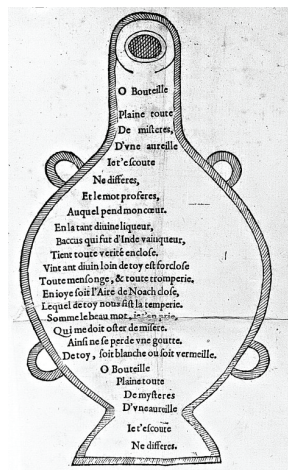 O Bouteille
Plaine toute
De misteres,
D'vne aureille
Ie t'escoute
Ne differes,
Et le mot proferes,
Auquel pend mon cœur.
En la tant diuine liqueur,
Baccus qui fut d'Inde vainqueur,
Tient toute verité enclose.
Vint ant diuin loin de toy est forclose
Toute mensonge, & toute tromperie.
En ioye soit l'Aire de Noach close,
Lequel de toy nous fist la temperie.
Somme le beau mot, ie t'en prie,
Qui me doit oster de misere.
Ainsi ne se perde vne goutte.
De toy, soit blanche ou soit vermeille.
O Bouteille
Plaine toute
De mysteres
D'vne aureille
Ie t'escoute
Ne differes.